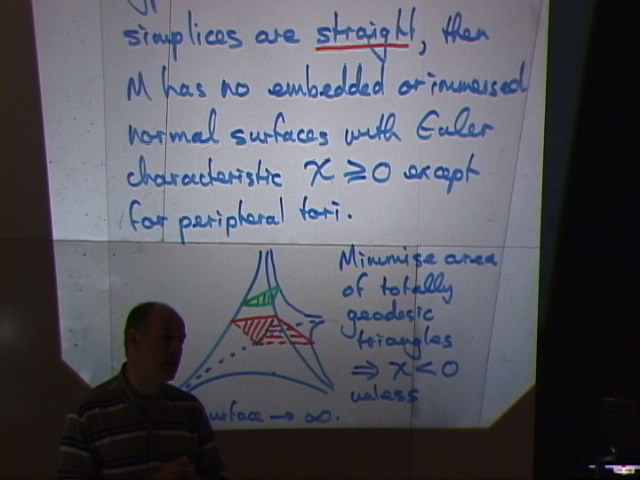 simplices are straight, then
M has no embedded or immersed
normal surfaces with Euler
characteristic χ ≥ 0 except
for peripheral tori.
Minimise area
of totally
geodesic
triangles
⇒ χ < 0
unless
urface → ∞.